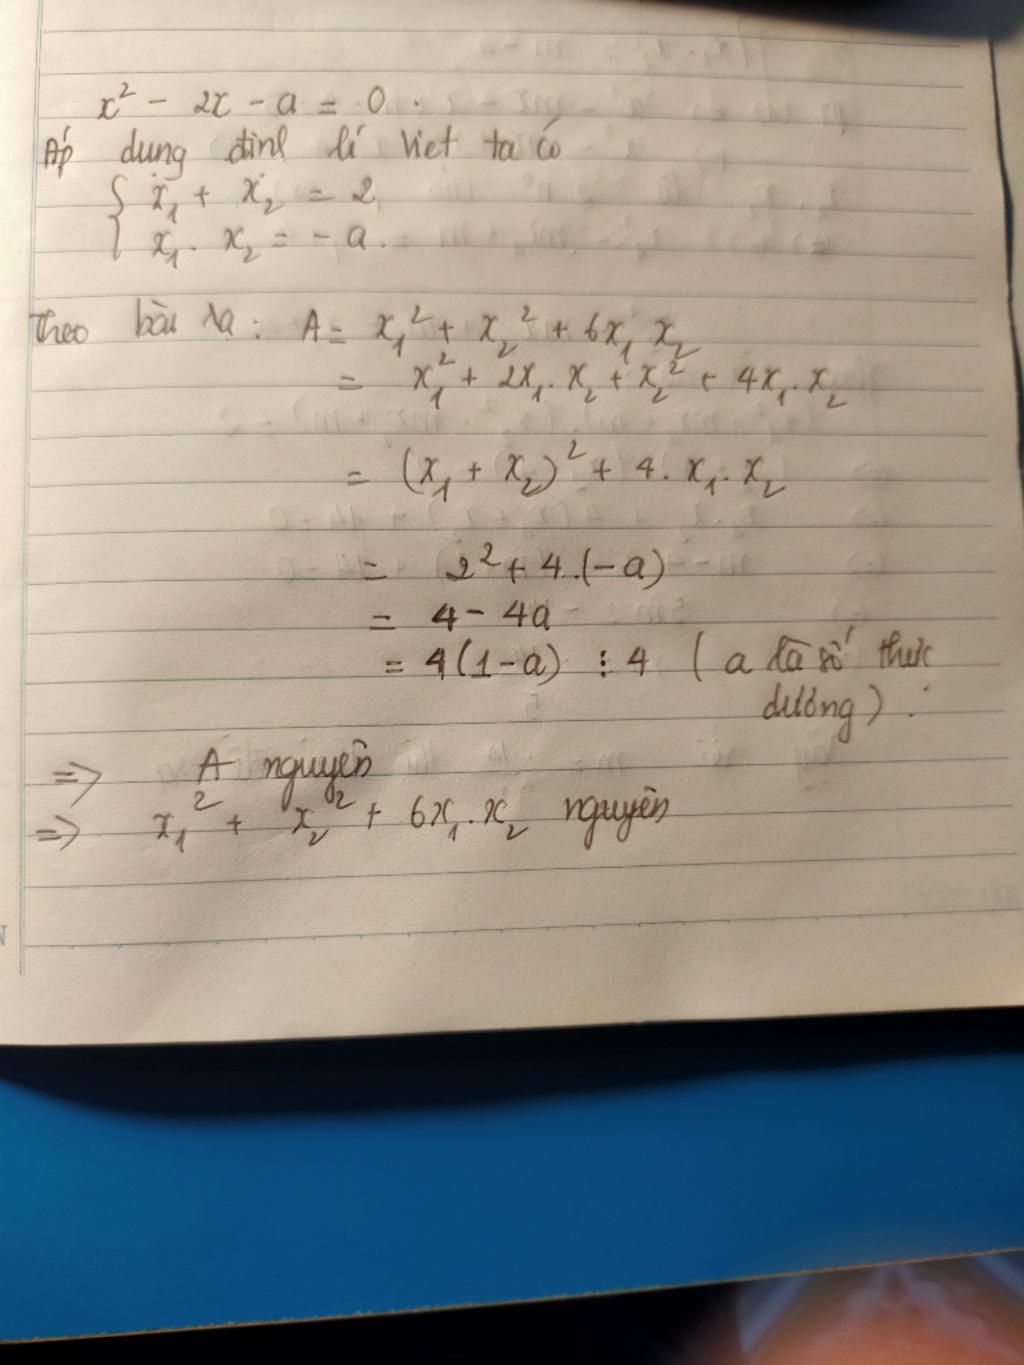 x² - 2x - a = 0.
Áp dụng định lí Viet ta có
{ x₁ + x₂ = 2
x₁ . x₂ = - a.
Theo bài ra : A = x₁² + x₂² + 6x₁ x₂
= x₁² + 2x₁ . x₂ + x₂² + 4x₁ . x₂
= (x₁ + x₂)² + 4 . x₁ . x₂
= 2² + 4 .(-a)
= 4 - 4a
= 4(1-a) ⋮ 4 ( a là số thực
dương) .
=> A nguyên
=> x₁² + x₂² + 6x₁ . x₂ nguyên